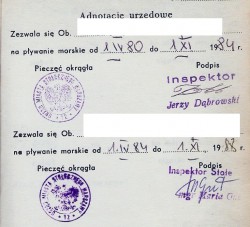 Adnotacje urzędowe
Zezwala się Ob.
na pływanie morskie od 1 IV 80 do 1 XI 1984 r.
Pieczęć okrągła Podpis
Inspektor
Jerzy Dąbrowski
Zezwala się Ob.
na pływanie morskie od 1. IV 84 do 1. XI. 1988 r.
Pieczęć okrągła Podpis
Inspektor